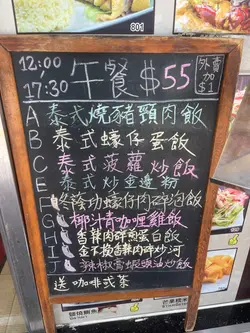 801
12:00
17:30 午餐 $55
外賣
加
$1
A 泰式燒豬頸肉飯
B 泰式蠔仔蛋飯
C 泰式菠蘿炒飯
E 泰式炒金邊粉
F 冬陰功蠔仔肉碎泡飯
G 椰汁青咖喱雞飯
H 香辣肉碎煎蛋白飯
I 金不換香辣肉碎炒河
J 辣椒膏蜆頭油炒飯
送 咖啡或茶